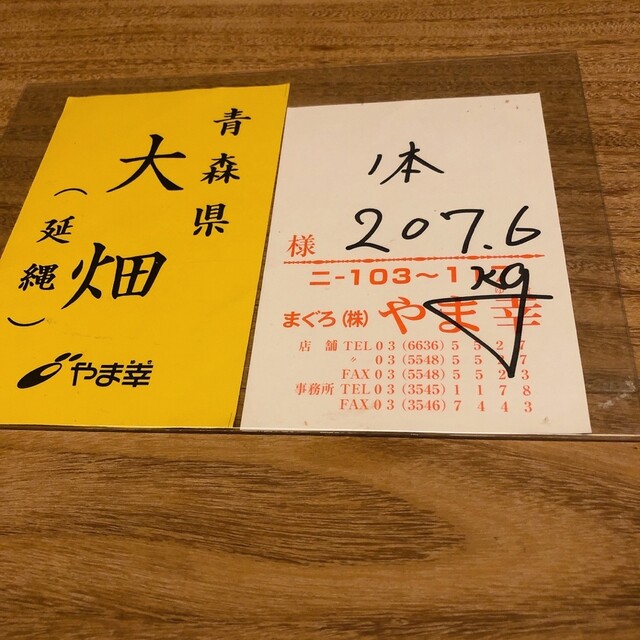 青森県
大畑
(延縄)
やま幸
1本
207.6
kg
様
ニ-103~1
まぐろ(株) やま幸
店舗 TEL 03 (6636) 5 5 2 7
〃 03 (5548) 5 5 7
FAX 03 (5548) 5 5 2 3
事務所 TEL 03 (3545) 1 1 7 8
FAX 03 (3546) 7 4 4 3